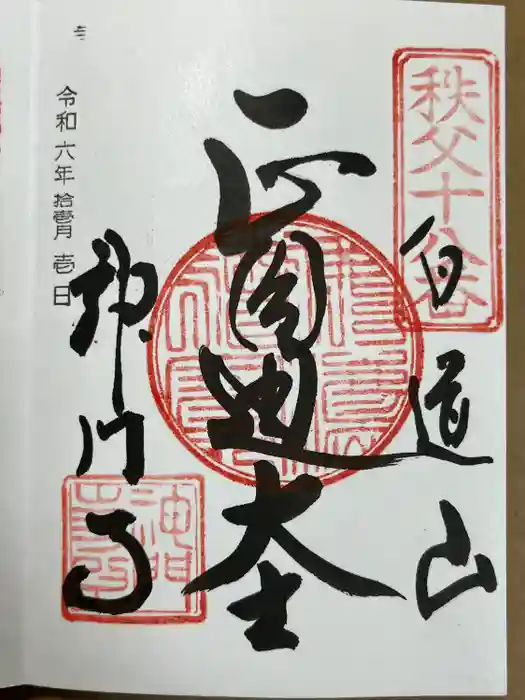 秩父十八番
白道山
正圓通大士
神門寺
令和六年 拾壹月 壱日